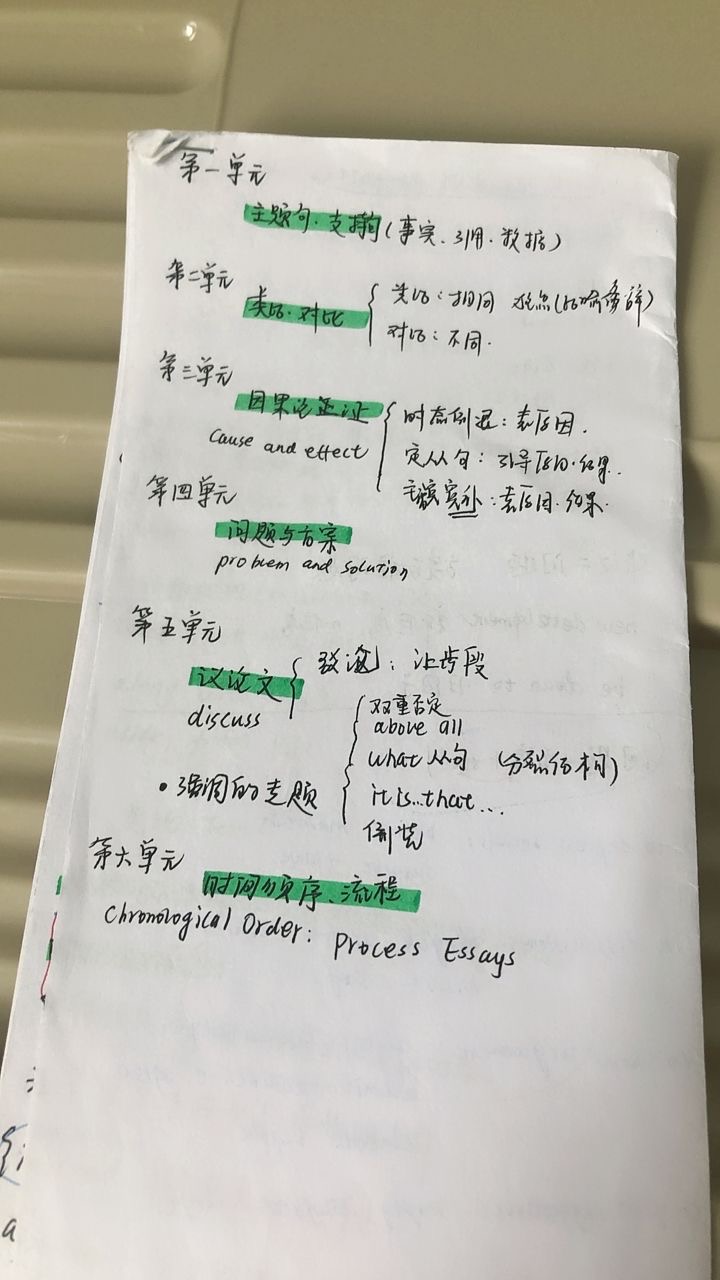 第一单元
主题句·支撑句(事实、引用·数据)
第二单元
类比·对比
类比:相同 难点(比喻修辞)
对比:不同.
第三单元
因果论证
cause and effect
时态倒退:表原因.
定从句:引导原因·结果.
:表原因·结果.
第四单元
问题与方案
problem and solution
第五单元
议论文
discuss
:让步段
·强调的专题
双重否定
above all
what 从句
it is...that...
倒装
第六单元
时间顺序、流程
Chronological Order: Process Essays